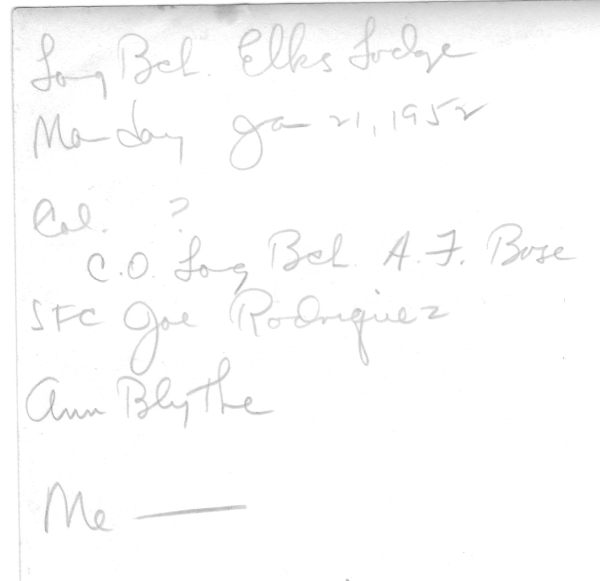 Long Bch. Elks Lodge
Monday Jan 21, 1952
Col. ?
C.O. Long Bch. A.F. Base
SFC Joe Rodriguez
Ann Blythe
Me —